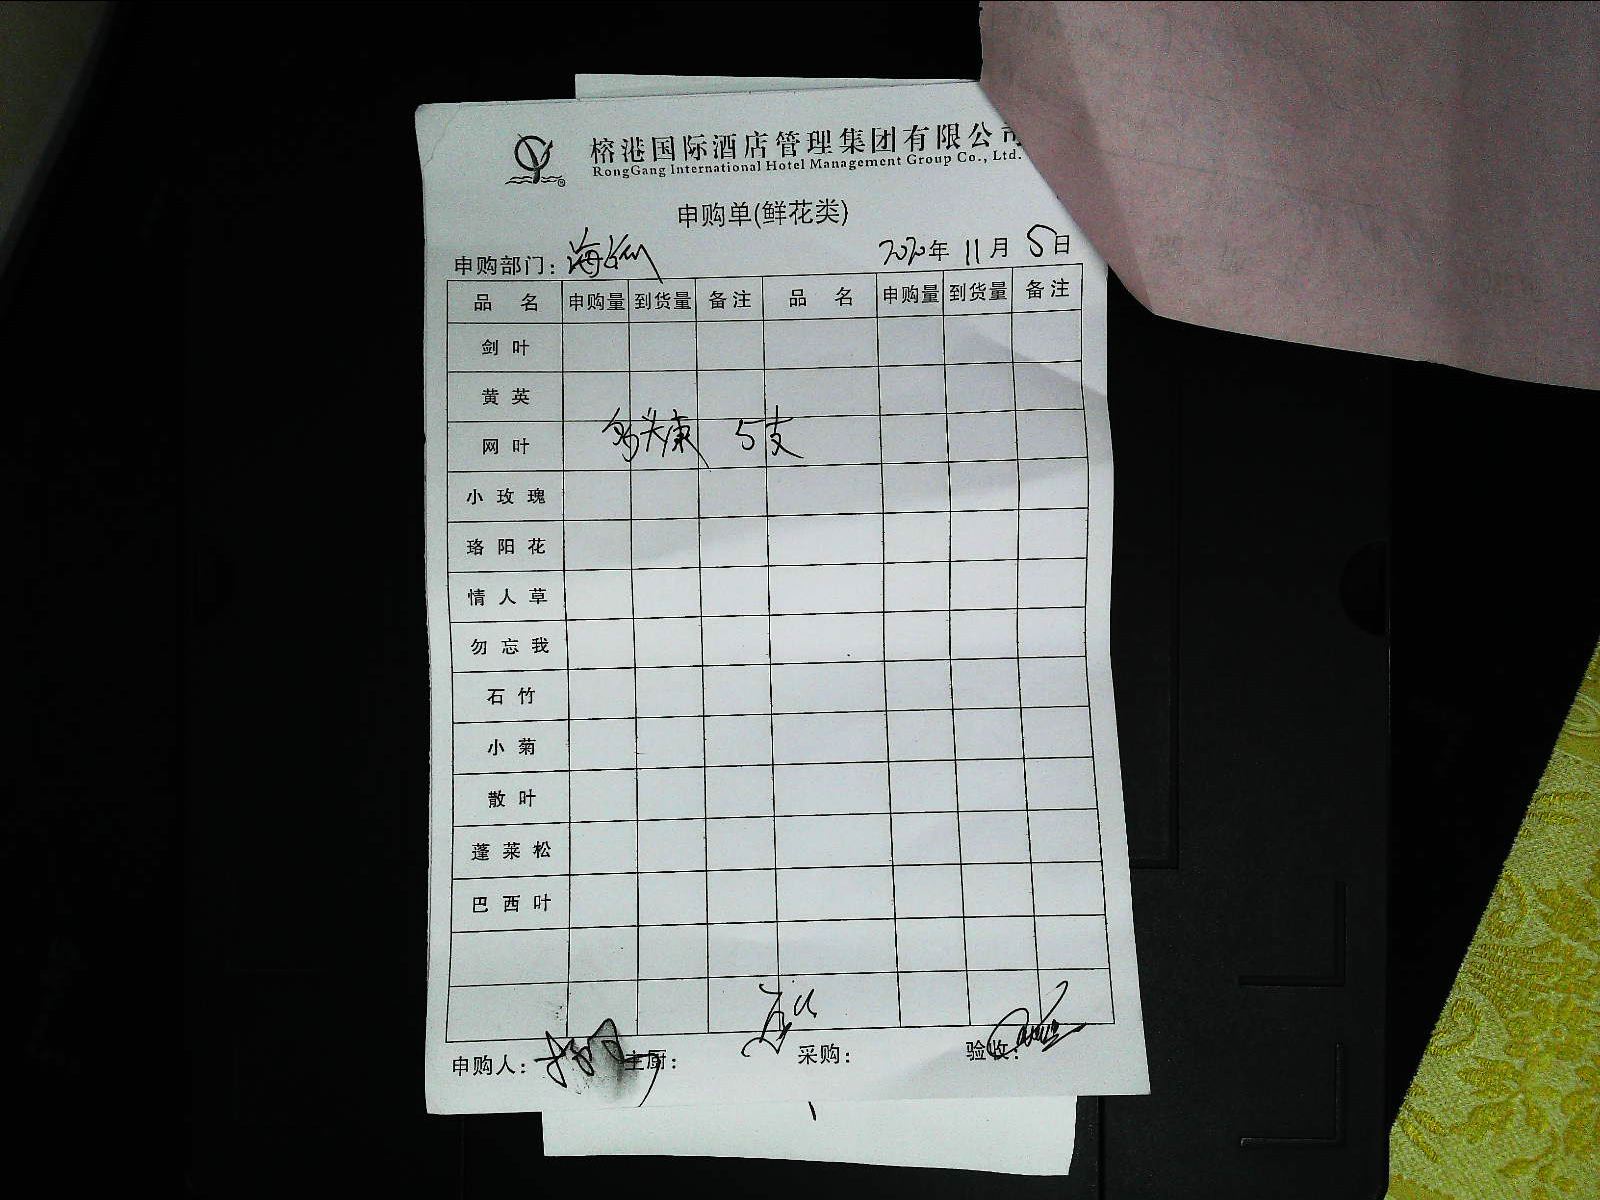 榕港国际酒店管理集团有限公司
RongGang International Hotel Management Group Co., Ltd.
申购单(鲜花类)
申购部门: 2020年 11月 5日
品 名 申购量 到货量 备注 品 名 申购量 到货量 备注
剑叶
黄英
网叶 5支
小玫瑰
珞阳花
情人草
勿忘我
石竹
小菊
散叶
蓬莱松
巴西叶
申购人: 主厨: 采购: 验收: